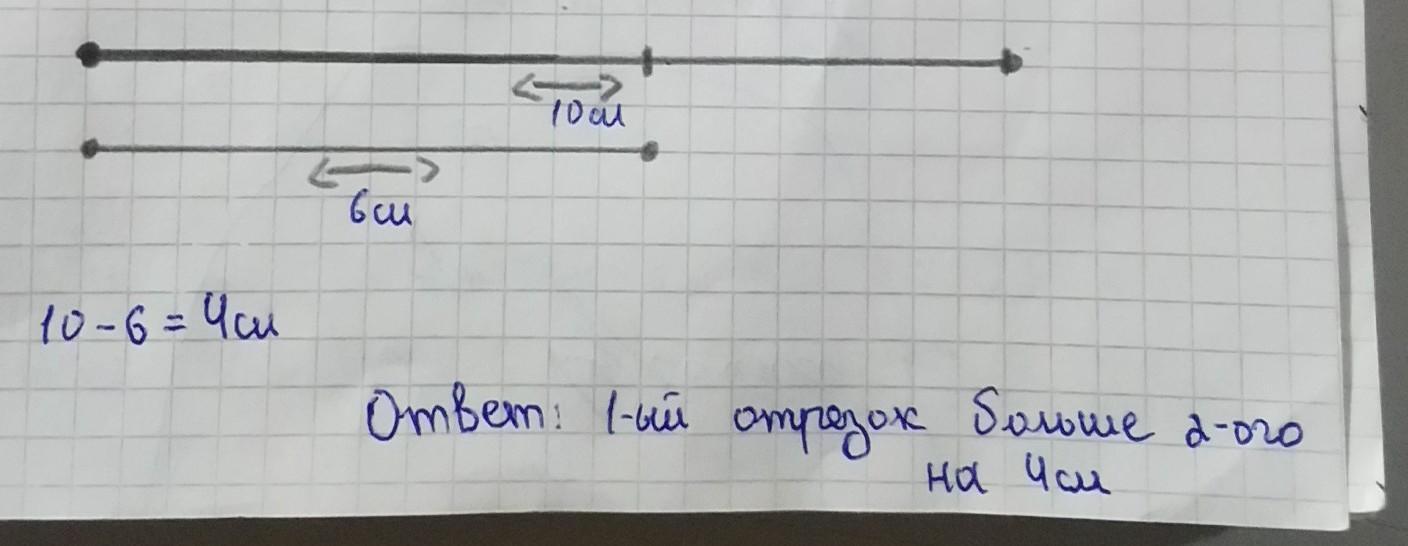 10см
6см
10-6=4см
Ответ: 1-ый отрезок больше 2-ого
на 4см